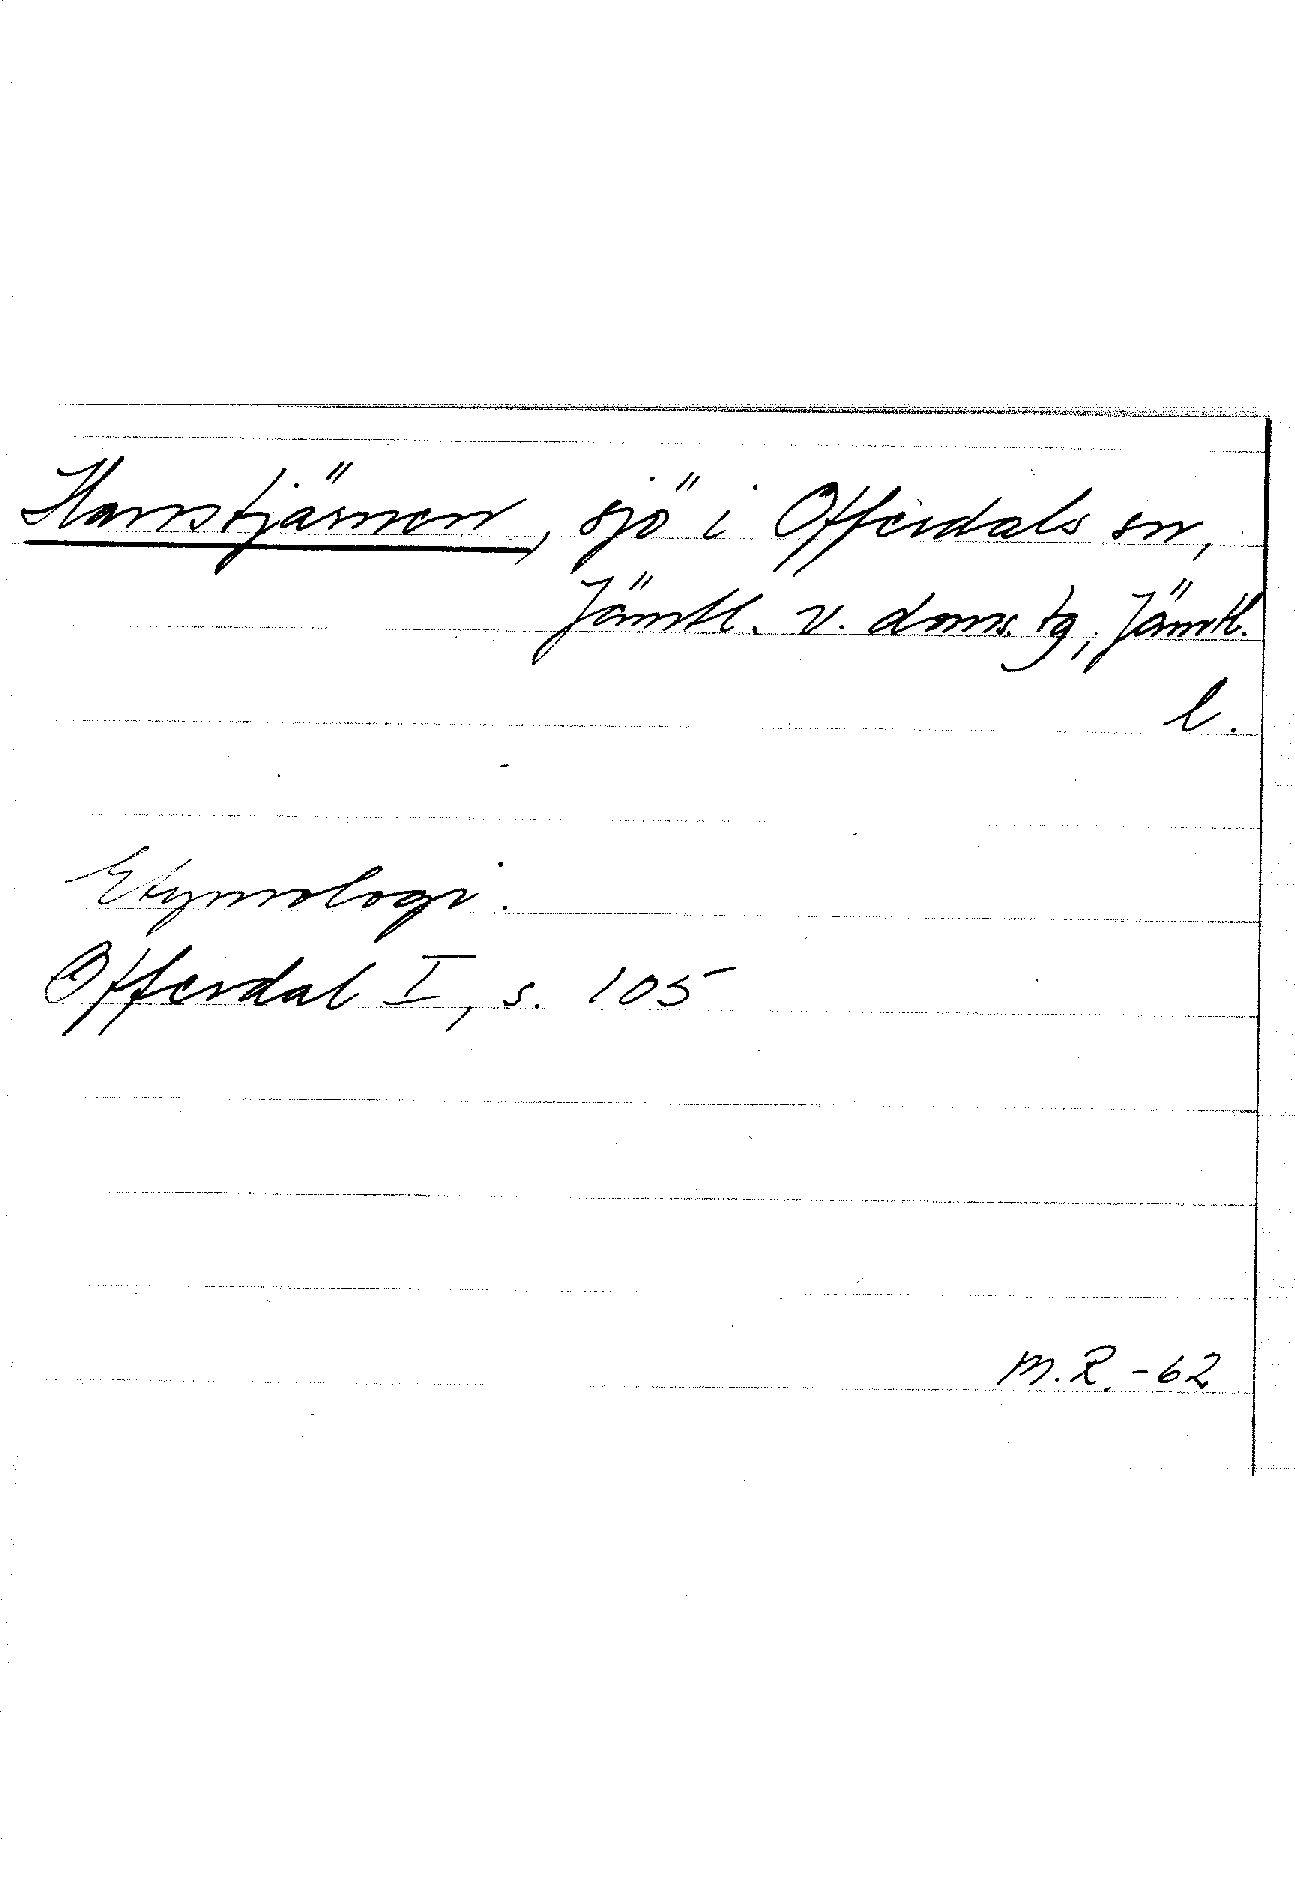 Hanstjärnen, sjö i Offerdals sn,
Jämtl. v. doms. tg, Jämtl.
l.
Etymologi:
Offerdal I, s. 105
M.R. -62